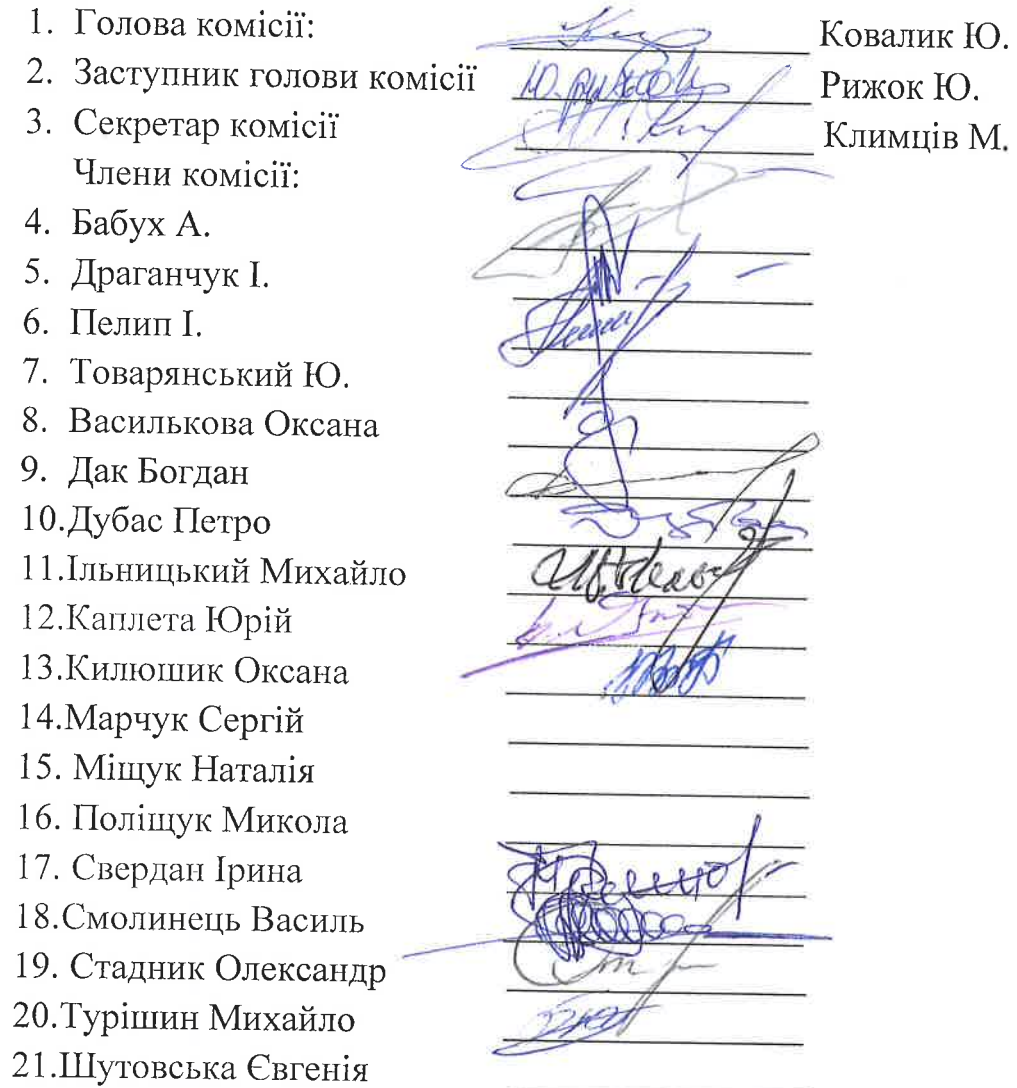 1. Голова комісії: Ковалик Ю.
2. Заступник голови комісії Рижок Ю.
3. Секретар комісії Климців М.
Члени комісії:
4. Бабух А.
5. Драганчук І.
6. Пелип І.
7. Товарянський Ю.
8. Василькова Оксана
9. Дак Богдан
10.Дубас Петро
11.Ільницький Михайло
12.Каплета Юрій
13.Килюшик Оксана
14.Марчук Сергій
15. Міщук Наталія
16. Поліщук Микола
17. Свердан Ірина
18.Смолинець Василь
19. Стадник Олександр
20.Турішин Михайло
21.Шутовська Євгенія